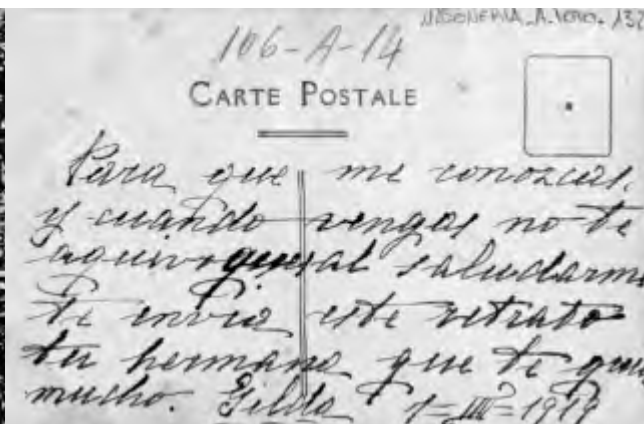 MASONERIA-A.
106-A-14
CARTE POSTALE
Para que me conozcas,
y cuando vengas no te
aquivoques al saludarme
te envia este retrato
tu hermano que te
mucho. Gildo 1=III=1919